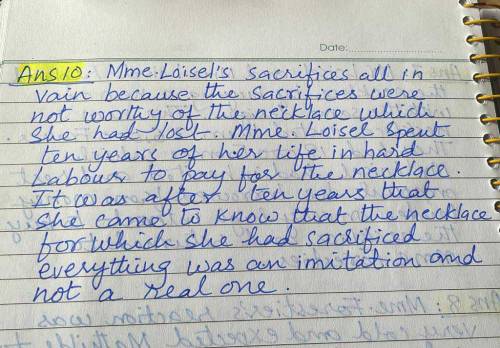 Date:
Ans 10: Mme. Loisel's sacrifices all in
vain because the sacrifices were
not worthy of the necklace which
she had lost. Mme. Loisel spent
ten years of her life in hard
Labour to pay for the necklace.
It was after ten years that
she came to know that the necklace
for which she had sacrificed
everything was an imitation and
not a real one.